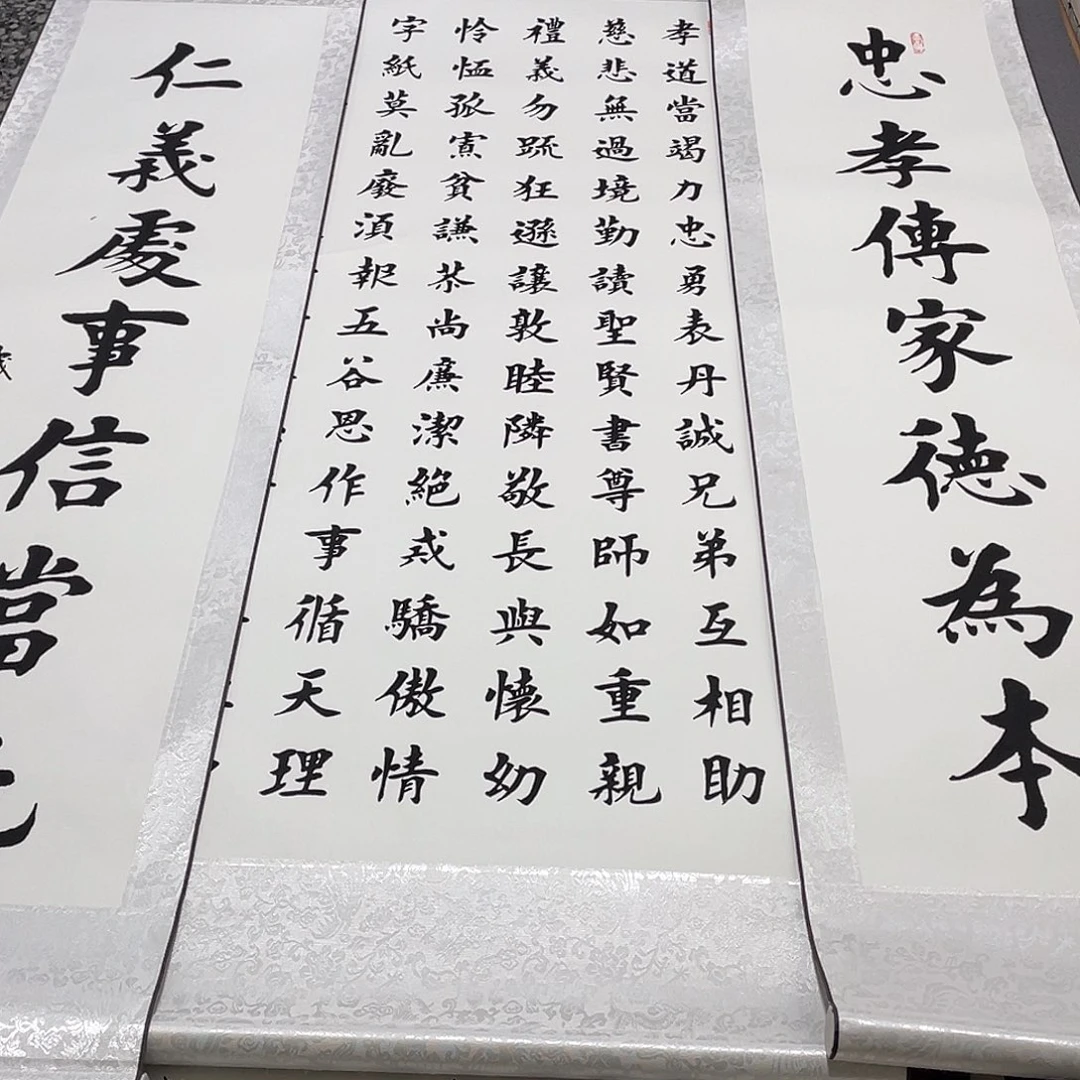 忠孝傳家德為本
孝道當竭力忠勇表丹誠兄弟互相助
慈悲無過境勤讀聖賢書尊師如重親
禮義勿疏狂遜讓敦睦隣敬長與懷幼
怜恤孤寡貧謙恭尚廉潔絕戒驕傲情
字紙莫亂廢須報五谷恩作事循天理
仁義處事信當